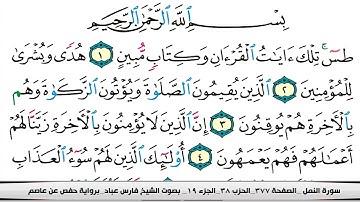 بِسْمِ ٱللَّهِ ٱلرَّحْمَٰنِ ٱلرَّحِيمِ
طسٓ ۚ تِلْكَ ءَايَٰتُ ٱلْقُرْءَانِ وَكِتَابٍ مُّبِينٍ ١ هُدًى وَبُشْرَىٰ
لِلْمُؤْمِنِينَ ٢ ٱلَّذِينَ يُقِيمُونَ ٱلصَّلَوٰةَ وَيُؤْتُونَ ٱلزَّكَوٰةَ وَهُم
بِٱلْءَاخِرَةِ هُمْ يُوقِنُونَ ٣ إِنَّ ٱلَّذِينَ لَا يُؤْمِنُونَ بِٱلْءَاخِرَةِ زَيَّنَّا لَهُمْ
أَعْمَٰلَهُمْ فَهُمْ يَعْمَهُونَ ٤ أُو۟لَٰٓئِكَ ٱلَّذِينَ لَهُمْ سُوٓءُ ٱلْعَذَابِ
سورة النمل _ الصفحة ٣٧٧_ الحزب ٣٨_ الجزء ١٩ _ بصوت الشيخ فارس عباد_ برواية حفص عن عاصم